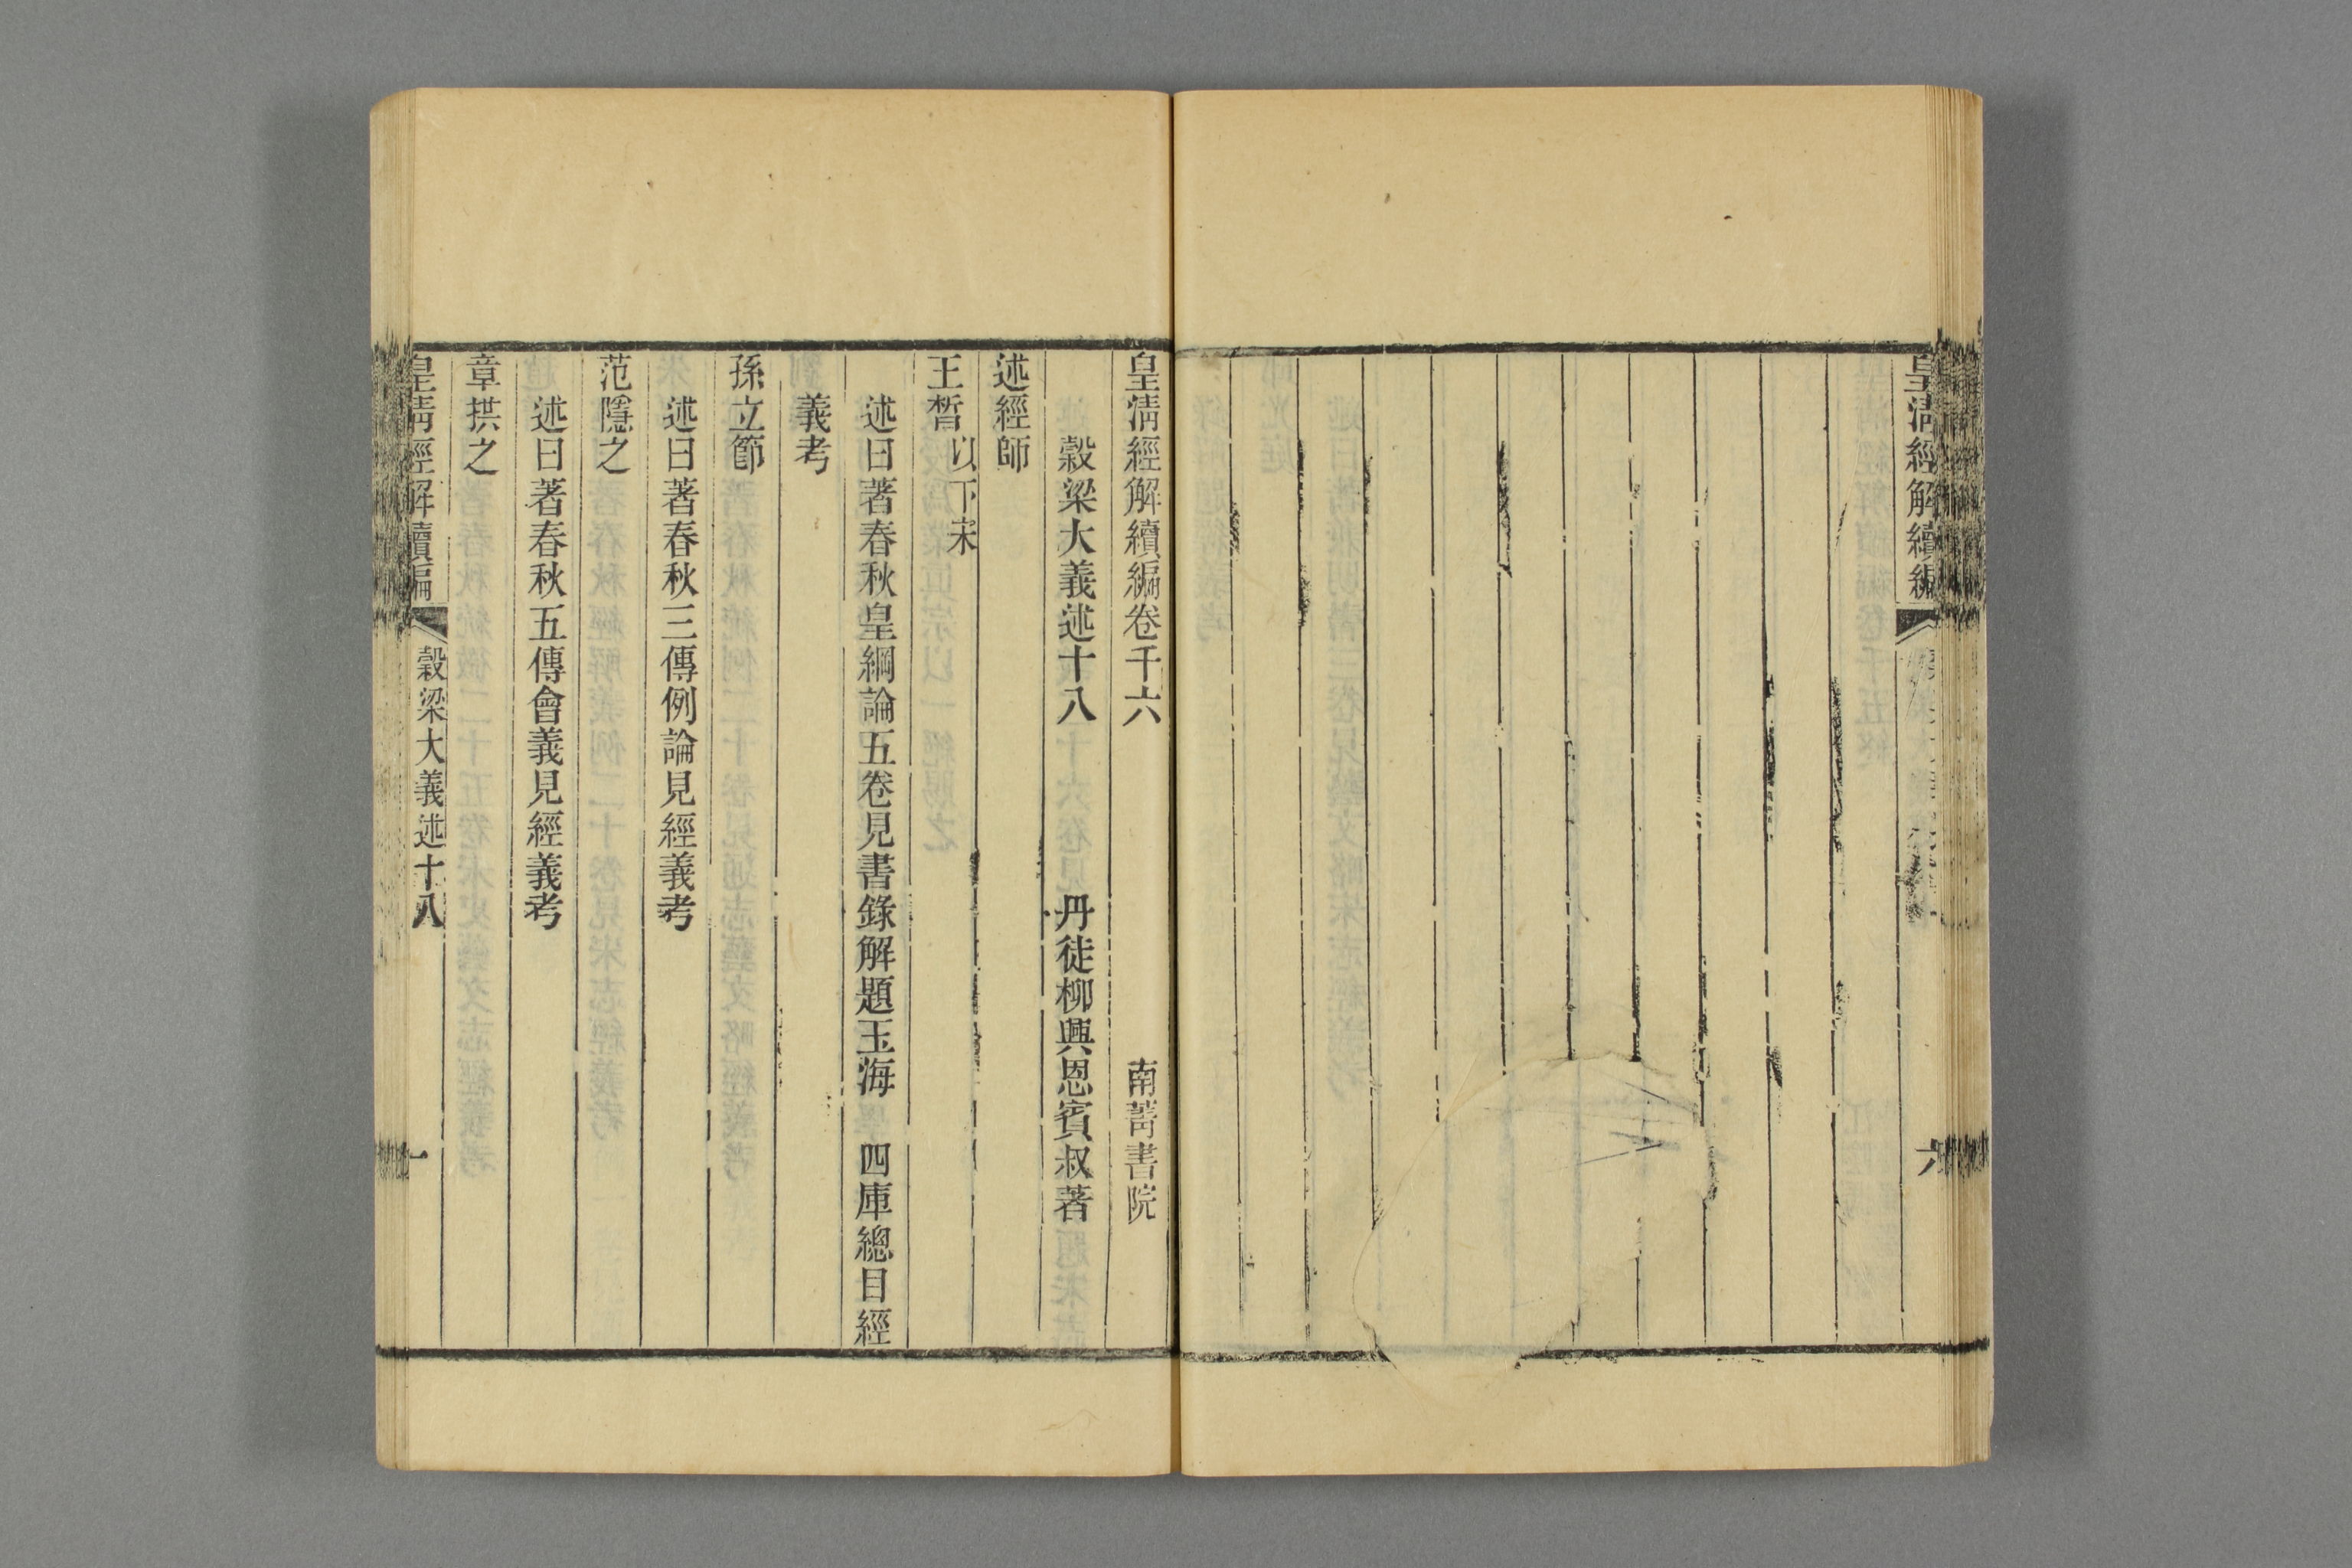 皇清經解續編
六
皇清經解續編卷千六 南菁書院
穀梁大義述十八 丹徒柳興恩賓叔著
述經師
王晳 以下宋
述曰著春秋皇綱論五卷見書錄解題玉海 四庫總目經
義考
孫立節
述曰著春秋三傳例論見經義考
范隱之
述曰著春秋五傳會義見經義考
章拱之
皇清經解續編 穀梁大義述十八 一